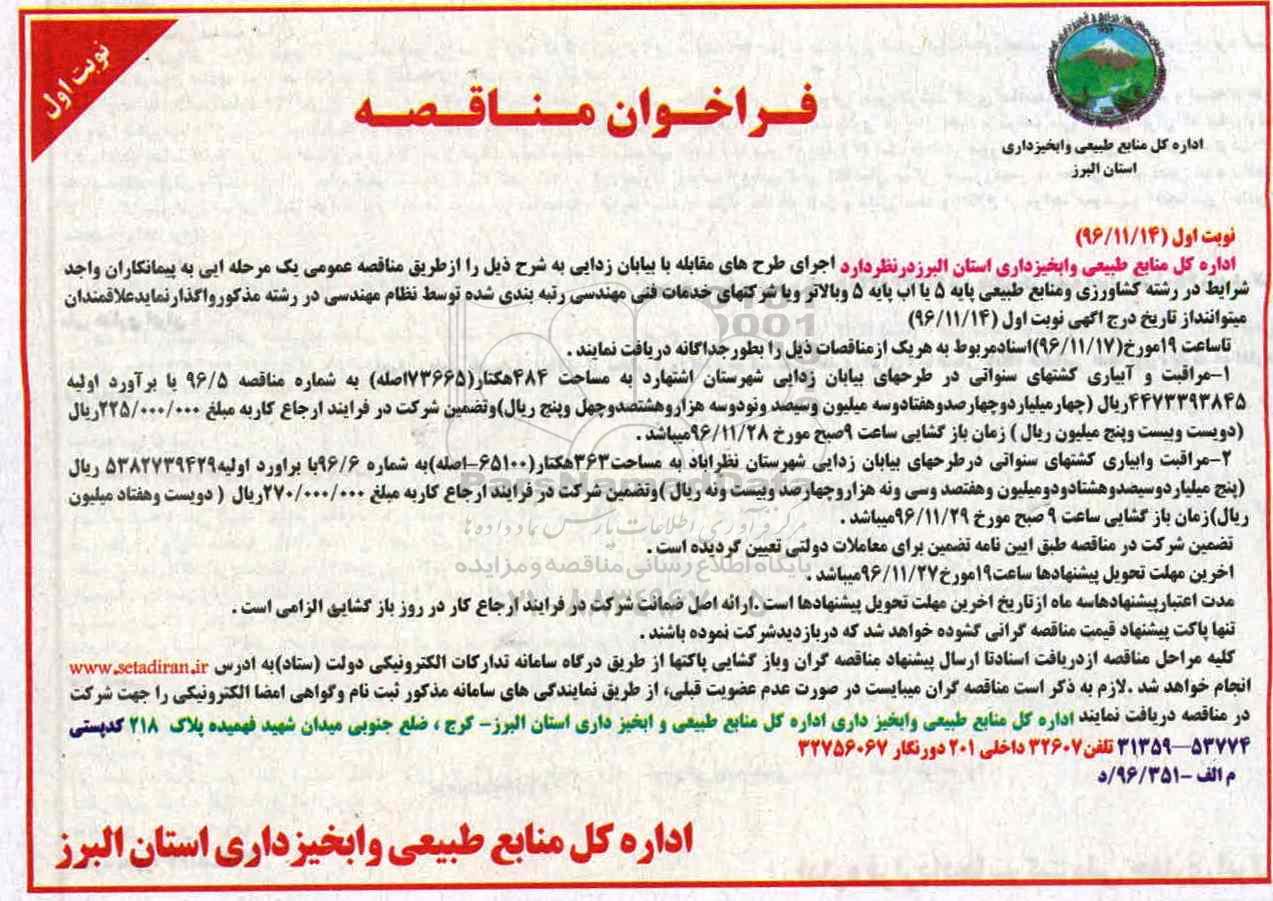 نوبت اول
فراخوان مناقصه
اداره کل منابع طبیعی وابخیزداری
استان البرز
نوبت اول (۹۶/۱۱/۱۴)
اداره کل منابع طبیعی وابخیزداری استان البرزدرنظردارد اجرای طرح های مقابله با بیابان زدایی به شرح ذیل را ازطریق مناقصه عمومی یک مرحله ایی به پیمانکاران واجد
شرایط در رشته کشاورزی ومنابع طبیعی پایه ۵ یا اب پایه ۵ وبالاتر ویا شرکتهای خدمات فنی مهندسی رتبه بندی شده توسط نظام مهندسی در رشته مذکورواگذارنمایدعلاقمندان
میتوانتداز تاریخ درج اگهی نوبت اول (۹۶/۱۱/۱۴)
تاساعت ۱۹مورخ(۹۶/۱۱/۱۷)اسنادمربوط به هریک ازمناقصات ذیل را بطورجداگانه دریافت نمایند .
۱-مراقبت و آبیاری کشتهای سنواتی در طرحهای بیابان زدایی شهرستان اشتهارد به مساحت ۴۸۴هکتار(۷۳۶۶۵اصله) به شماره مناقصه ۹۶/۵ با برآورد اولیه
۴۴۷۳۳۹۳۸۴۵ریال (چهارمیلیاردوچهارصدوهفتادوسه میلیون وسیصد ونودوسه هزاروهشتصدوچهل وپنج ریال)وتضمین شرکت در فرایند ارجاع کاربه مبلغ ۲۲۵/۰۰۰/۰۰۰ریال
(دویست وبیست وپنج میلیون ریال ) زمان باز گشایی ساعت ۹صبح مورخ ۹۶/۱۱/۲۸میباشد .
۲-مراقبت وابیاری کشتهای سنواتی درطرحهای بیابان زدایی شهرستان نظراباد به مساحت۳۶۳هکتار(۶۵۱۰۰-اصله)به شماره ۹۶/۶با براورد اولیه۵۳۸۲۷۳۹۴۲۹ ریال
(پنج میلیاردوسیصدوهشتادودومیلیون وهفتصد وسی ونه هزاروچهارصد وبیست ونه ریال )وتضمین شرکت در فرایند ارجاع کاربه مبلغ ۲۷۰/۰۰۰/۰۰۰ریال ( دویست وهفتاد میلیون
ریال)زمان باز گشایی ساعت ۹ صبح مورخ ۹۶/۱۱/۲۹میباشد .
تضمین شرکت در مناقصه طبق ایین نامه تضمین برای معاملات دولتی تعیین گردیده است .
اخرین مهلت تحویل پیشنهادها ساعت۱۹مورخ۹۶/۱۱/۲۷میباشد .
مدت اعتبارپیشنهادهاسه ماه ازتاریخ اخرین مهلت تحویل پیشنهادها است .ارائه اصل ضمانت شرکت در فرایند ارجاع کار در روز باز گشایی الزامی است .
تنها پاکت پیشنهاد قیمت مناقصه گرانی گشوده خواهد شد که دربازدیدشرکت نموده باشند .
کلیه مراحل مناقصه ازدریافت اسنادتا ارسال پیشنهاد مناقصه گران وباز گشایی پاکتها از طریق درگاه سامانه تدارکات الکترونیکی دولت (ستاد)به ادرس www.setadiran.ir
انجام خواهد شد .لازم به ذکر است مناقصه گران میبایست در صورت عدم عضویت قبلی، از طریق نمایندگی های سامانه مذکور ثبت نام وگواهی امضا الکترونیکی را جهت شرکت
در مناقصه دریافت نمایند اداره کل منابع طبیعی وابخیز داری اداره کل منابع طبیعی و ابخیز داری استان البرز- کرج ، ضلع جنوبی میدان شهید فهمیده پلاک ۲۱۸ کدپستی
۵۳۷۷۴—۳۱۳۵۹ تلفن۳۲۶۰۷ داخلی ۲۰۱ دورنگار ۳۲۷۵۶۰۶۷
م الف -۹۶/۳۵۱/د
اداره کل منابع طبیعی وابخیزداری استان البرز
ParsNamadData
مرکز فرآوری اطلاعات پارس نماد داده ها
پایگاه اطلاع رسانی مناقصه و مزایده